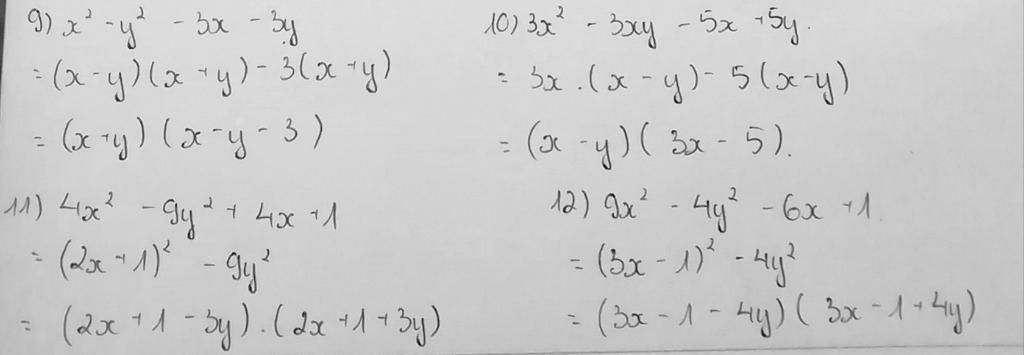 9) x² - y² - 3x - 3y
= (x - y)(x + y) - 3(x + y)
= (x + y)(x - y - 3)
10) 3x² - 3xy - 5x + 5y.
= 3x.(x - y) - 5(x - y)
= (x - y)(3x - 5).
11) 4x² - 9y² + 4x + 1
= (2x + 1)² - 9y²
= (2x + 1 - 3y).(2x + 1 + 3y)
12) 9x² - 4y² - 6x + 1.
= (3x - 1)² - 4y²
= (3x - 1 - 4y)(3x - 1 + 4y)